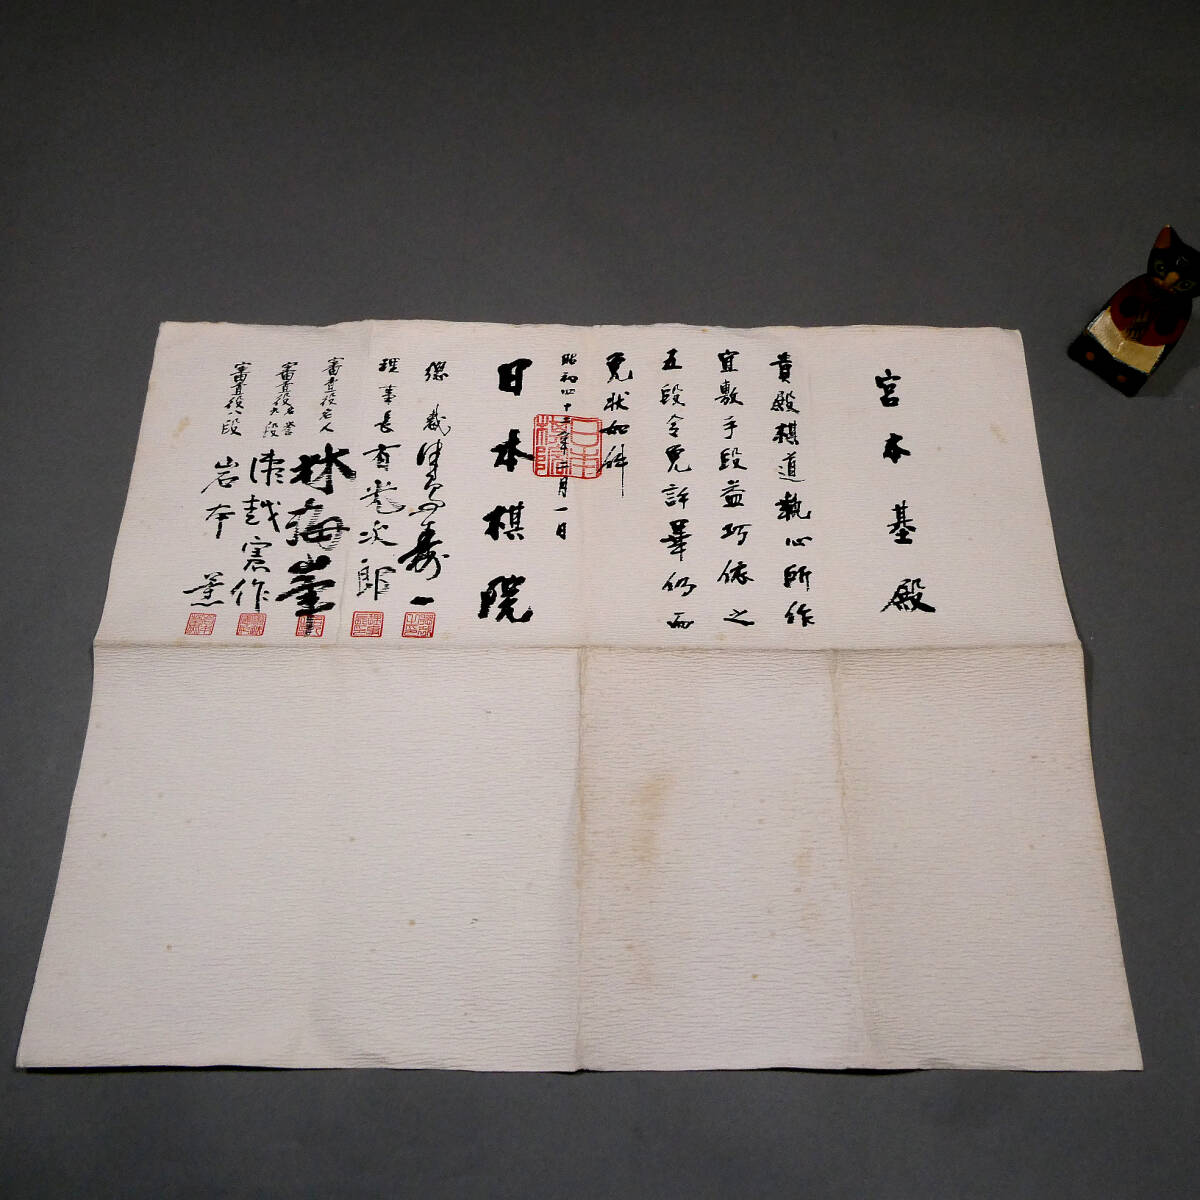 宮本基殿
貴殿棋道執心所作
宜敷手段益巧依之
五段令免許畢仍而
免状如件
昭和四十三年二月一日
日本棋院
総裁 津島寿一
理事長 有光次郎
審査役名人 林海峯
審査役名誉九段 津越宏作
審査役八段 岩本薫
日本棋院